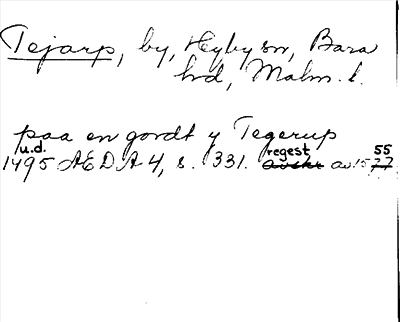 Tejarp, by, Hyby sn, Bara
hd, Malm. l.
paa en gordt y Tegerup
u.d.
1495 AEDA 4, s. 331. regest av 1555